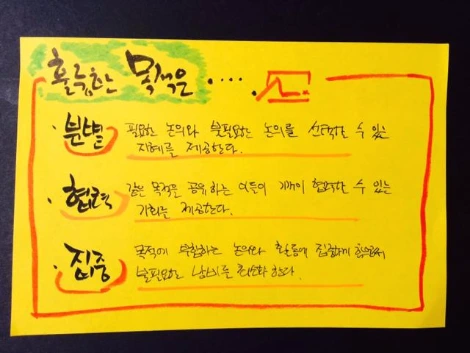 훌륭한 목적은 ....
· 분별
필요한 논의와 불필요한 논의를 선택할 수 있는
지혜를 제공한다.
· 협력
같은 목적을 공유하는 이들이 기꺼이 협력할 수 있는
기회를 제공한다.
· 집중
목적에 부합하는 논의와 활동에 집중하게 함으로써
불필요한 낭비를 최소화 한다.